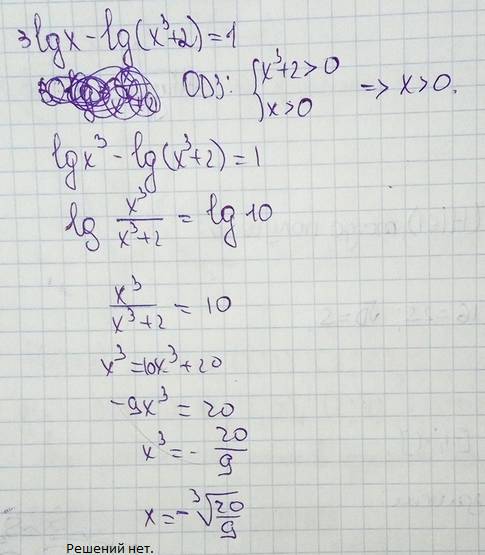 3lgx - lg(x³+2) = 1
ОДЗ: { x³+2 > 0
x > 0 => x > 0.
lgx³ - lg(x³+2) = 1
lg x³/(x³+2) = lg 10
x³/(x³+2) = 10
x³ = 10x³ + 20
-9x³ = 20
x³ = - 20/9
x = - ³√(20/9)
Решений нет.